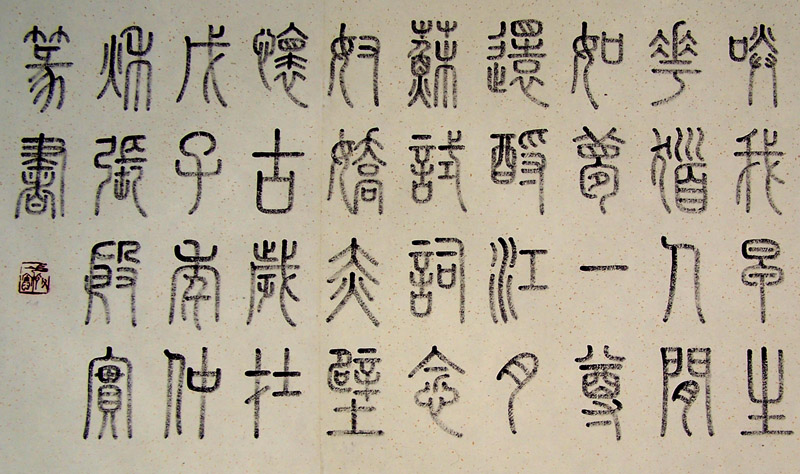 咲我早生
華髮人間
如夢一尊
還酹江月
蘇試詞念
奴嬌赤壁
懷古歲在
戊子年仲
秋張殷實
篆書